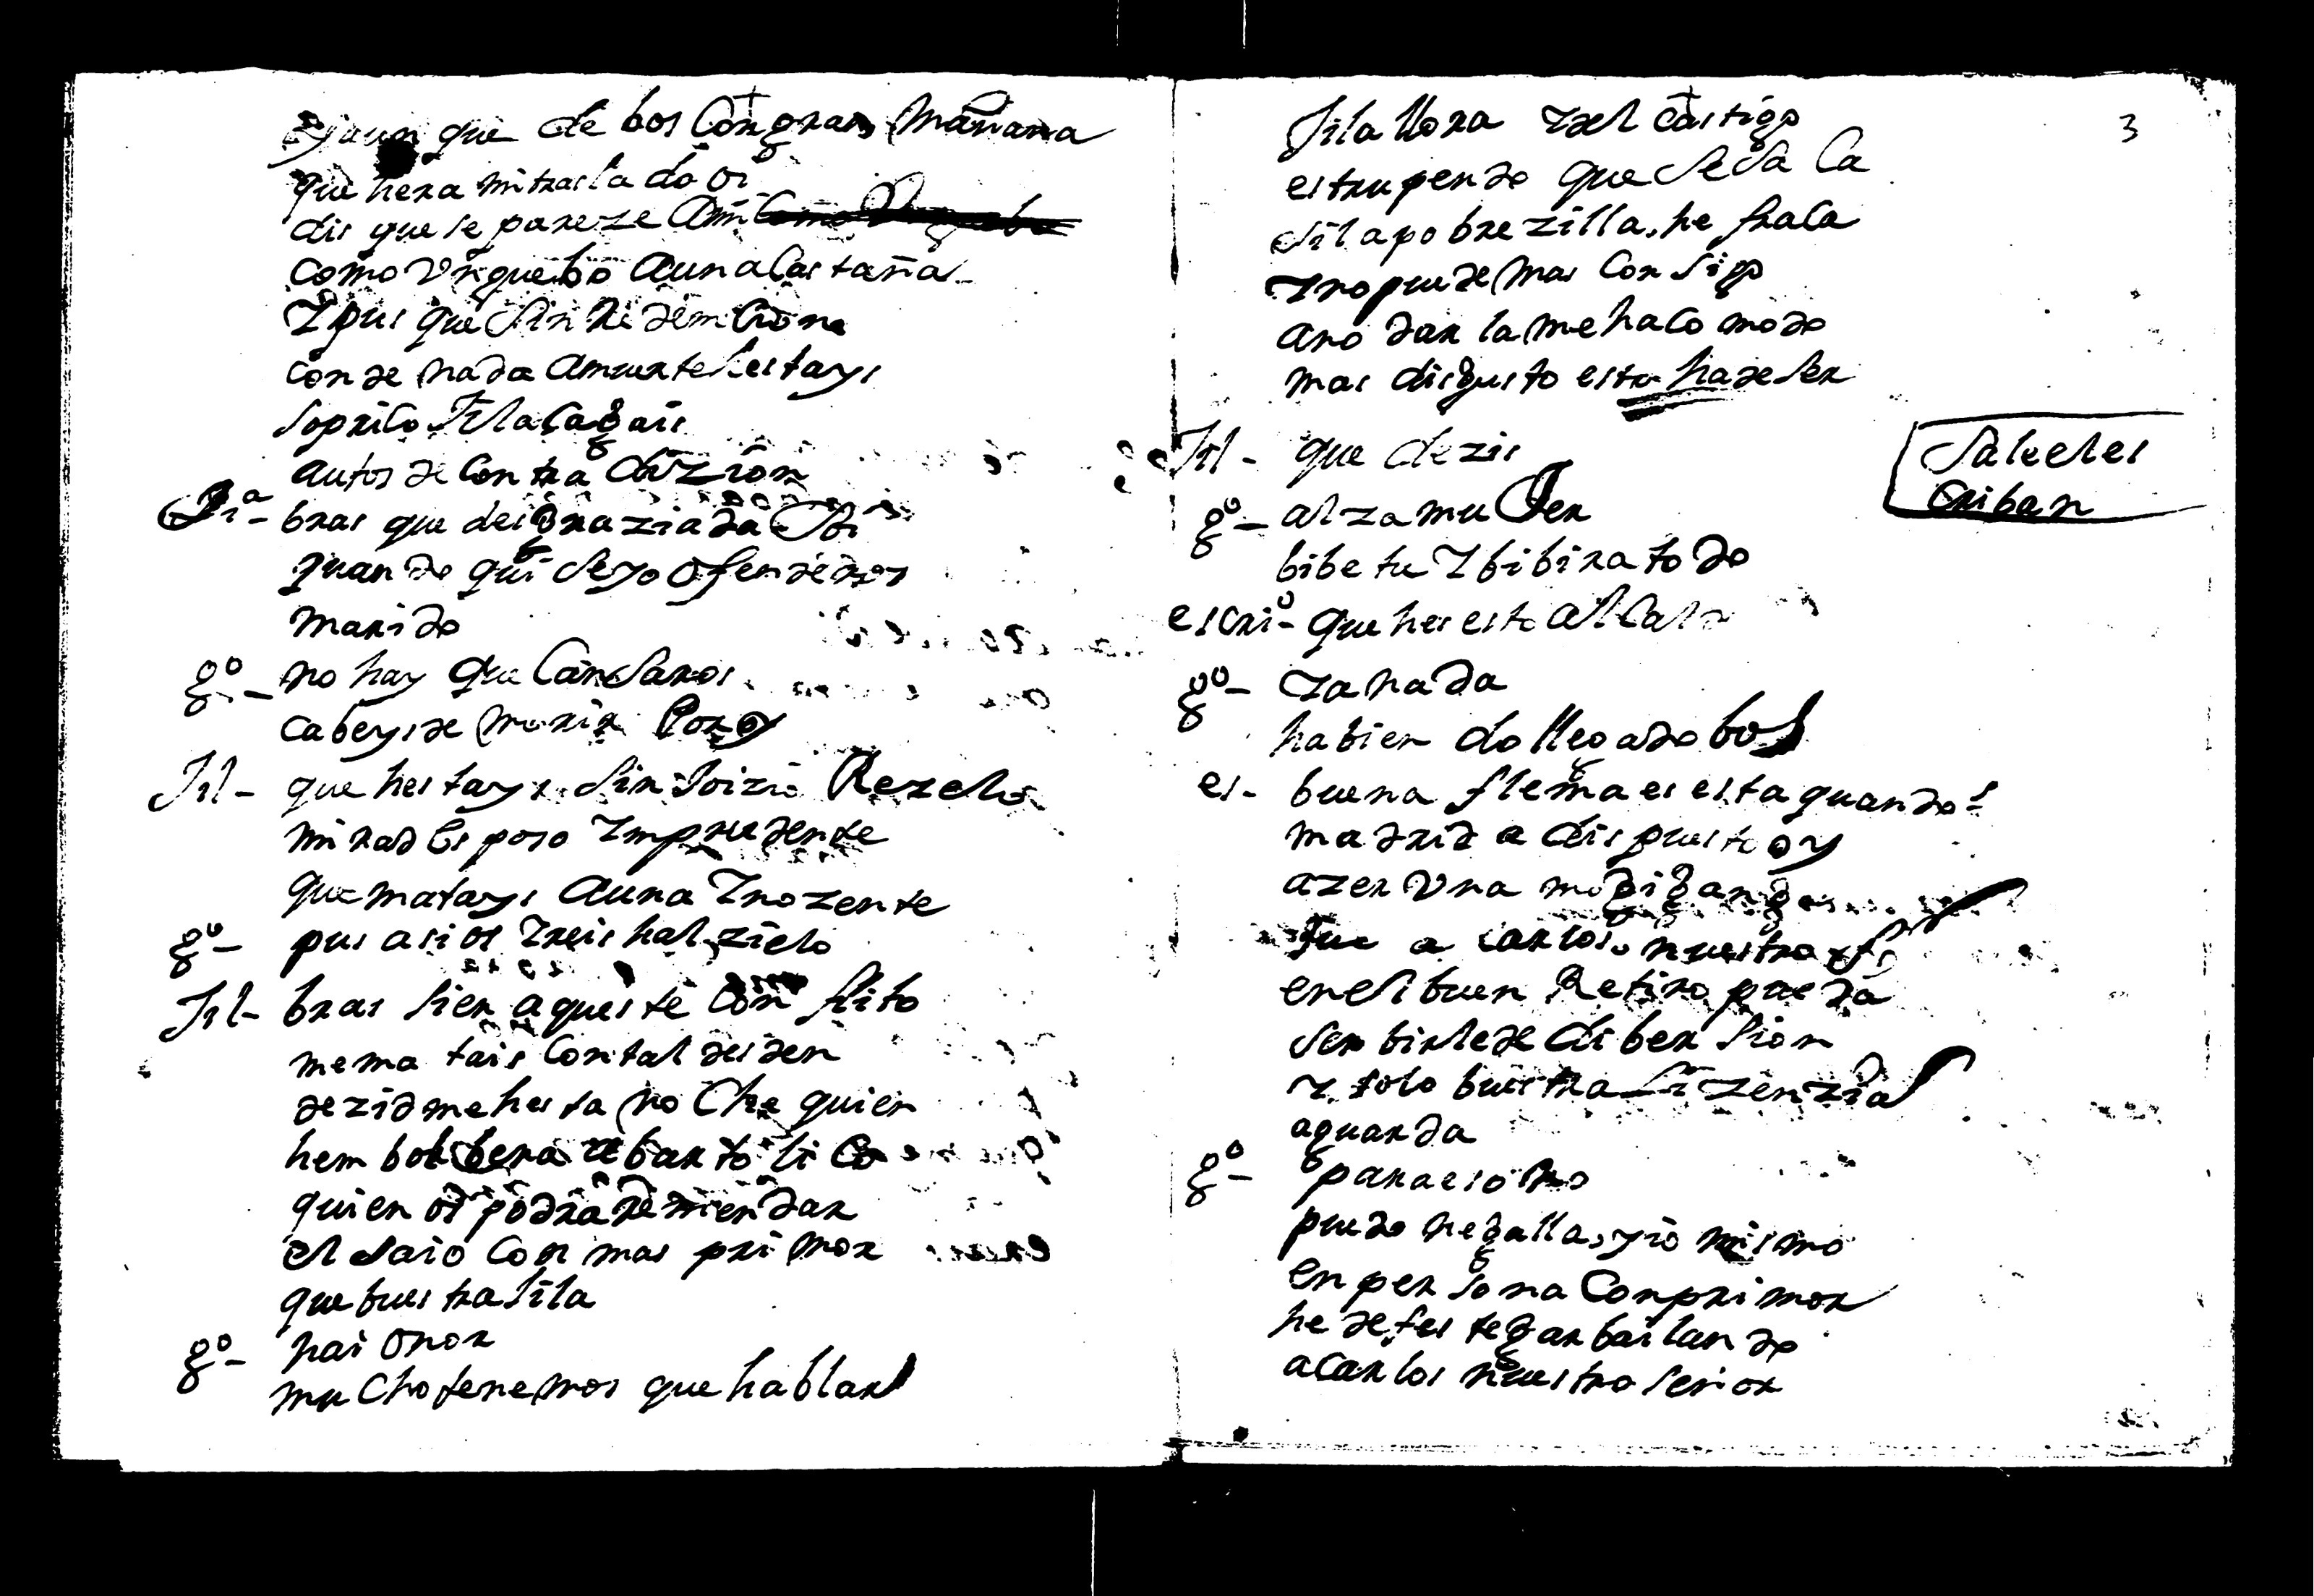 y aun que de bos Con gran Manana
que hera mi traslado oi
dis que se pareze Ami
como Un guebo Auna Castaña
I pus que sin Redemcion
condenada Amuerte hestays
soplico Jila cagais
autos de Contra dizion
bras que desgraziada
quando qui se yo ofenderos
marido
gº- no hay que Cansaros
cabeys de morir
Jil- que hestays sin Joizio Rezelo
mirad Esposo Imprudente
que matays Auna Inozente
gº- pus asi os Ireis hal zielo
Jil- bras sien aqueste Con flito
me ma tais Con tal desden
dezidme hesta no Che quien
hem bolbera a bartolico
quien os podra remendar
el saio Con mas primor
que buestra Jila
gº- hai onor
mu Cho tenemos que hablar
3
Jila llora I el castigo
estupendo que se da La
Jila pobrezilla, he
I no puede mas Con sigo
ano dar la me hacomodo
mas disgusto esto ha de ser
Jil- que dezis
gº- alza muJer
bibe tu I bibira todo
Sale el es
criban
escriº- que hes esto Alcalde
gº- Ia nada
habien do llegado bos
es- buena flema es esta quando
madrid a dispuesto oy
azer Una mogiganga
que a carlos nuestro
en el buen Retiro pueda
serbirle de diber sion
I solo buestra lizenzia
aguarda
gº- para eso no
puedo negalla, yio mismo
en persona Con primor
he de festegar bailando
a Carlos nuestro señor